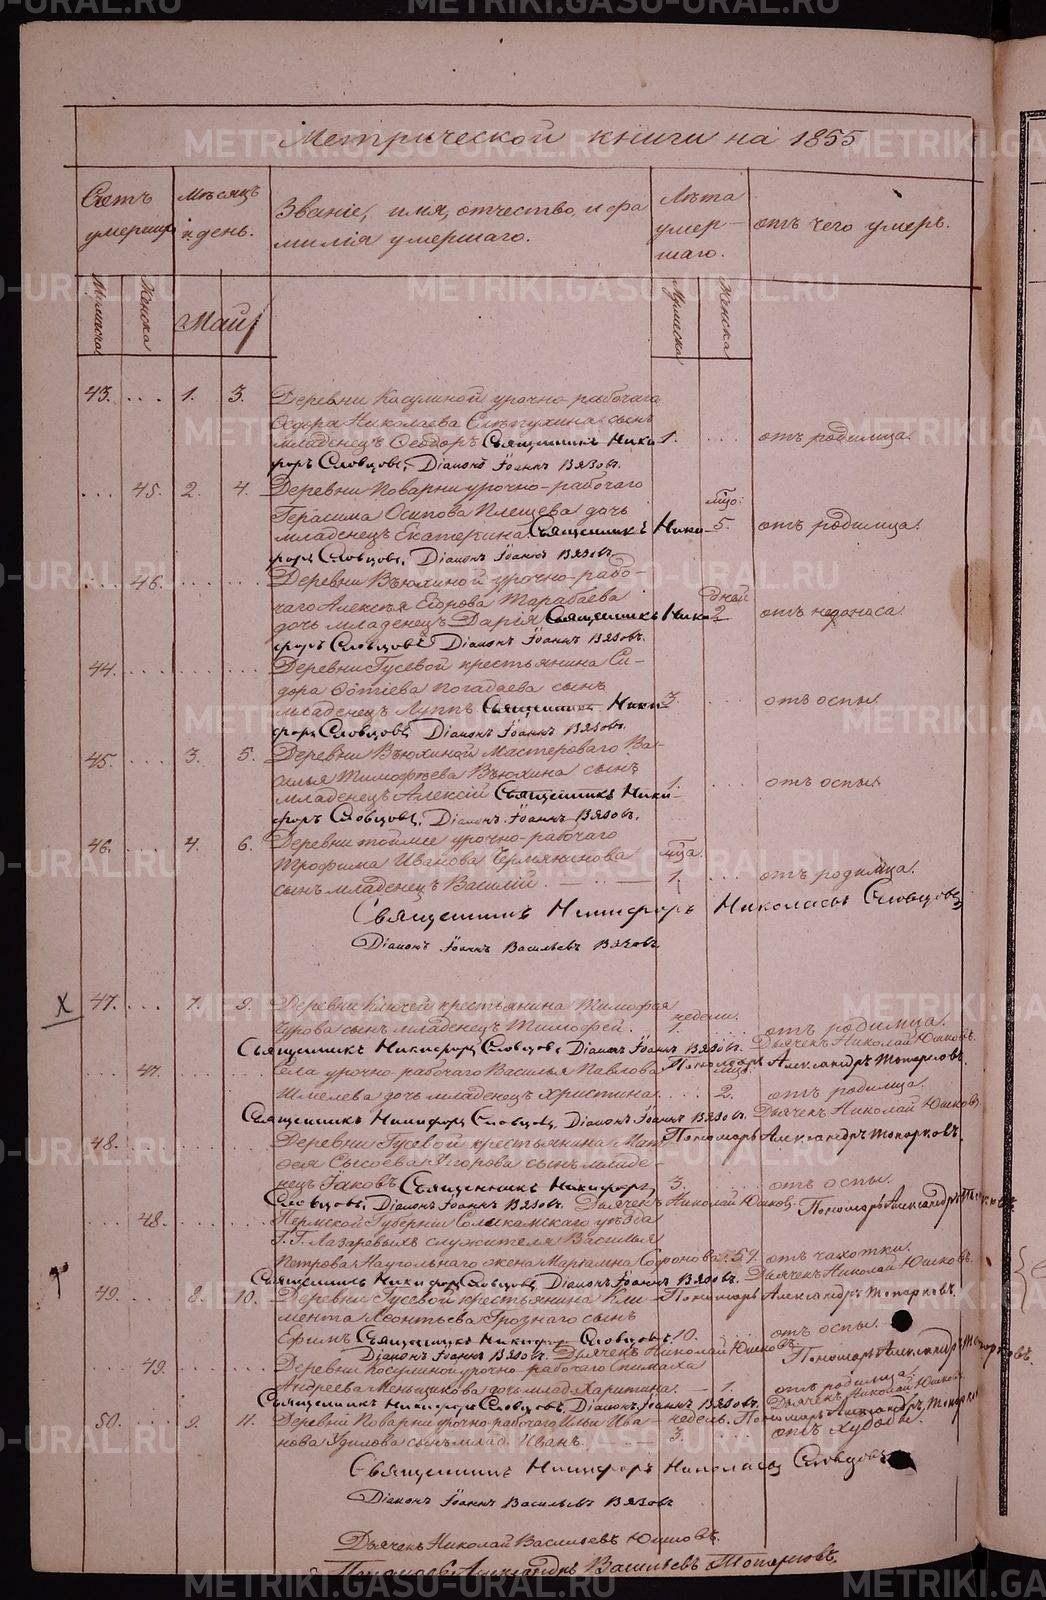 METRIKI.GASO-URAL.RU
Метрической книги на 1855
Счетъ умерших
Мѣсяцъ и день.
Званіе, имя, отчество, и фамилія умершаго.
Лѣта умершаго.
отъ чего умеръ.
Мужеска
Женска
Май
Мужеска
Женска
43. ... 1. 3. Деревни Косулиной урочно-рабочаго
Ѳедора Николаева сынъ
младенецъ Ѳеодоръ Священникъ Ники- 1. ... отъ родимца.
форъ Словцовъ, Діаконъ Іоаннъ Вязовъ.
... 45. 2. 4. Деревни Поварни урочно-рабочаго
Герасима Осипова Плещева дочь мцо:
младенецъ Екатерина Священникъ Ники- 5. отъ родимца.
форъ Словцовъ, Діаконъ Іоаннъ Вязовъ.
... 46. ... Деревни Вьюхиной урочно-рабо-
чаго Алексѣя Егорова Тарабаева дней
дочь младенецъ Дарія Священникъ Ники- 2 отъ недоноса
форъ Словцовъ Діаконъ Іоаннъ Вязовъ.
44. ... Деревни Гусевой крестьянина Си-
дора Фотіева Погадаева сынъ
младенецъ Луппъ Священникъ Ники- 3. ... отъ оспы.
форъ Словцовъ, Діаконъ Іоаннъ Вязовъ.
45. ... 3. 5. Деревни Вьюхиной Мастероваго Ва-
силья Тимофѣева Вьюхина сынъ
младенецъ Алексій Священникъ Ники- 1. ... отъ оспы
форъ Словцовъ, Діаконъ Іоаннъ Вязовъ.
46. ... 4. 6. Деревни урочно-рабочаго
Трофима Иванова Чермянинова мца.
сынъ младенецъ Василій. 1. ... отъ родимца.
Священникъ Никифоръ Николаевъ Словцовъ
Діаконъ Іоаннъ Васильевъ Вязовъ
X 47. ... 7. 9. Деревни Ключей крестьянина Тимофея недели.
сынъ младенецъ Тимофей. 1. ... отъ родимца.
Священникъ Никифоръ Словцовъ, Діаконъ Іоаннъ Вязовъ. Дьячекъ Николай Юшковъ.
Пономарь Александръ Топорковъ.
... 47. ... Села урочно-рабочаго Василья Павлова мца.
Шмелева дочь младенецъ Христина. ... 2. отъ родимца.
Священникъ Никифоръ Словцовъ, Діаконъ Іоаннъ Вязовъ. Дьячекъ Николай Юшковъ.
Пономарь Александръ Топорковъ.
48. ... Деревни Гусевой крестьянина Мат-
ѳея Сысоева Угорова сынъ младе-
нецъ Іаковъ Священникъ Никифоръ 3. ... отъ оспы.
Словцовъ, Діаконъ Іоаннъ Вязовъ. Дьячекъ Николай Юшковъ. Пономарь Александръ Топорковъ
... 48. ... Пермской Губерніи Соликамскаго уѣзда
Г.Г. Лазаревыхъ служителя Василья
Петрова Наугольнаго жена Маріамна Софронова. 59 отъ чахотки.
Священникъ Никифоръ Словцовъ, Діаконъ Іоаннъ Вязовъ. Дьячекъ Николай Юшковъ.
Пономарь Александръ Топорковъ.
49. ... 8. 10. Деревни Гусевой крестьянина Кли-
мента Леонтьева Грознаго сынъ
Ефимъ Священникъ Никифоръ Словцовъ. 10. отъ оспы.
Діаконъ Іоаннъ Вязовъ. Дьячекъ Николай Юшковъ. Пономарь Александръ Топорковъ.
... 49. ... Деревни Косулиной урочно-рабочаго
Андреева Меньшикова дочь млад. Харитина. — 1. отъ родимца.
Священникъ Никифоръ Словцовъ, Діаконъ Іоаннъ Вязовъ. Дьячекъ Николай Юшковъ.
Пономарь Александръ Топорковъ
50. ... 9. 11. Деревни Поварни урочно-рабочаго Ильи Ива- недель.
нова Удилова сынъ млад. Иванъ. 3. ... отъ худобы.
Священникъ Никифоръ Николаевъ Словцовъ
Діаконъ Іоаннъ Васильевъ Вязовъ
Дьячекъ Николай Васильевъ Юшковъ.
Пономарь Александръ Васильевъ Топорковъ.